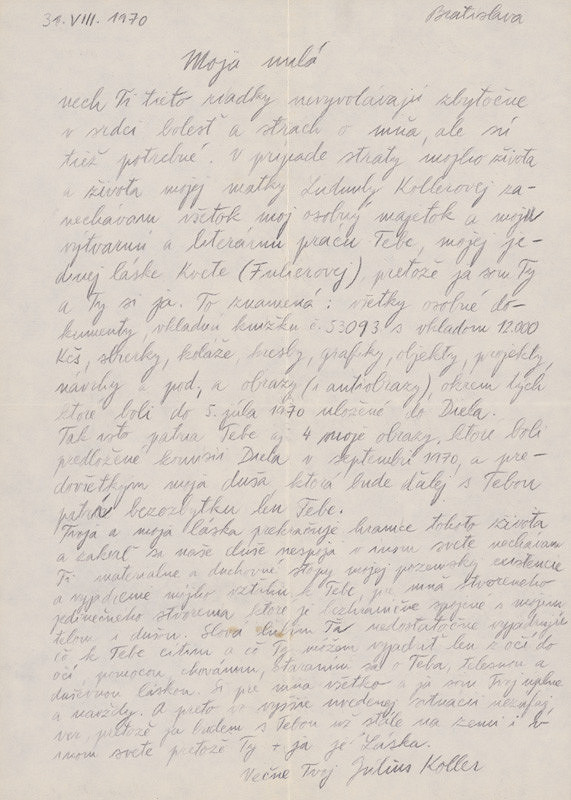 31. VIII. 1970 Bratislava
Moja milá
nech Ti tieto riadky nevyvolávajú zbytočne
v srdci bolesť a strach o mňa, ale sú
tiež potrebné. V prípade straty mojho života
a života mojej matky Ludmily Kollerovej za-
nechávam všetok moj osobný majetok a moju
výtvarnú a literárnu prácu Tebe, mojej je-
dinej láske Kvete (Fulierovej), pretože ja som Ty
a Ty si ja. To znamená: všetky osobné do-
kumenty, vkladnú knižku č. 53093 s vkladom 12.000
Kčs, zbierky, koláže, kresby, grafiky, objekty, projekty,
návrhy a pod, a obrazy (i antiobrazy), okrem tých
ktoré boli do 5. júla 1970 uložené do Diela.
Tak isto patria Tebe aj 4 moje obrazy, ktoré boli
predložené komisii Diela v septembri 1970, a pre-
dovšetkým moja duša ktorá bude ďalej s Tebou
patrí bezozbytku len Tebe.
Tvoja a moja láska prekračuje hranice tohoto života
a zakiaľ sa naše duše nespoja v inom svete nechávam
Ti materialne a duchovné stopy mojej pozemskej existencie
a vyjadrenie mojho vzťahu k Tebe, pre mňa stvoreného
jedinečného stvorenia, ktoré je bezhranične spojené s mojim
telom i dušou. Slová ľúbim Ťa nedostatočne vyjadrujú
čo k Tebe cítim a čo Ty možem vyjadriť len z očí do
očí, pomocou, chovaním, staraním sa o Teba, telesnou a
duševnou láskou. Si pre mňa všetko a ja som Tvoj úplne
a navždy. A preto vo vyššie uvedenej situácii nezúfaj,
ver, pretože ja budem s Tebou už stále na zemi i v
inom svete pretože Ty + ja je Láska.
Večne Tvoj Julius Koller